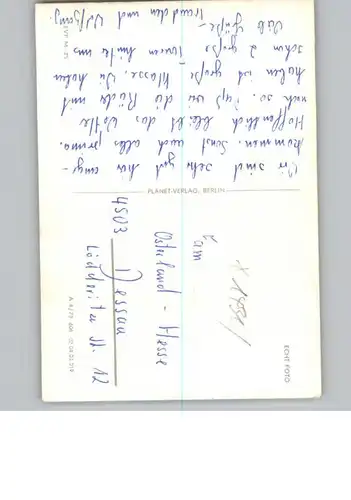 Wir sind sehr gut hier ange-
kommen. Sonst auch alles prima.
Hoffentlich bleibt das Wetter
noch so. Daß wir die Räder mit
haben ist große Klasse. Wir haben
schon 2 große Touren hinter uns
Liebe Grüße -
Traudchen und Wolfgang.
PLANET-VERLAG, BERLIN
Fam
Osterland - Hesse
4503 Dessau
12
A 4/79 604
ECHT FOTO